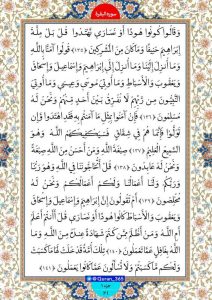 سورة البقرة
وَقَالُوا كُونُوا هُودًا أَوْ نَصَارَىٰ تَهْتَدُوا قُلْ بَلْ مِلَّةَ
إِبْرَاهِيمَ حَنِيفًا وَمَا كَانَ مِنَ الْمُشْرِكِينَ ﴿١٣٥﴾ قُولُوا آمَنَّا بِاللَّهِ
وَمَا أُنْزِلَ إِلَيْنَا وَمَا أُنْزِلَ إِلَىٰ إِبْرَاهِيمَ وَإِسْمَاعِيلَ وَإِسْحَاقَ
وَيَعْقُوبَ وَالْأَسْبَاطِ وَمَا أُوتِيَ مُوسَىٰ وَعِيسَىٰ وَمَا أُوتِيَ
النَّبِيُّونَ مِنْ رَبِّهِمْ لَا نُفَرِّقُ بَيْنَ أَحَدٍ مِنْهُمْ وَنَحْنُ لَهُ
مُسْلِمُونَ ﴿١٣٦﴾ فَإِنْ آمَنُوا بِمِثْلِ مَا آمَنْتُمْ بِهِ فَقَدِ اهْتَدَوْا وَإِنْ
تَوَلَّوْا فَإِنَّمَا هُمْ فِي شِقَاقٍ فَسَيَكْفِيكَهُمُ اللَّهُ وَهُوَ
السَّمِيعُ الْعَلِيمُ ﴿١٣٧﴾ صِبْغَةَ اللَّهِ وَمَنْ أَحْسَنُ مِنَ اللَّهِ صِبْغَةً
وَنَحْنُ لَهُ عَابِدُونَ ﴿١٣٨﴾ قُلْ أَتُحَاجُّونَنَا فِي اللَّهِ وَهُوَ رَبُّنَا
وَرَبُّكُمْ وَلَنَا أَعْمَالُنَا وَلَكُمْ أَعْمَالُكُمْ وَنَحْنُ لَهُ
مُخْلِصُونَ ﴿١٣٩﴾ أَمْ تَقُولُونَ إِنَّ إِبْرَاهِيمَ وَإِسْمَاعِيلَ وَإِسْحَاقَ
وَيَعْقُوبَ وَالْأَسْبَاطَ كَانُوا هُودًا أَوْ نَصَارَىٰ قُلْ أَأَنْتُمْ أَعْلَمُ
أَمِ اللَّهُ وَمَنْ أَظْلَمُ مِمَّنْ كَتَمَ شَهَادَةً عِنْدَهُ مِنَ اللَّهِ وَمَا
اللَّهُ بِغَافِلٍ عَمَّا تَعْمَلُونَ ﴿١٤٠﴾ تِلْكَ أُمَّةٌ قَدْ خَلَتْ لَهَا مَا كَسَبَتْ
وَلَكُمْ مَا كَسَبْتُمْ وَلَا تُسْأَلُونَ عَمَّا كَانُوا يَعْمَلُونَ ﴿١٤١﴾
@Quran_365
٢١